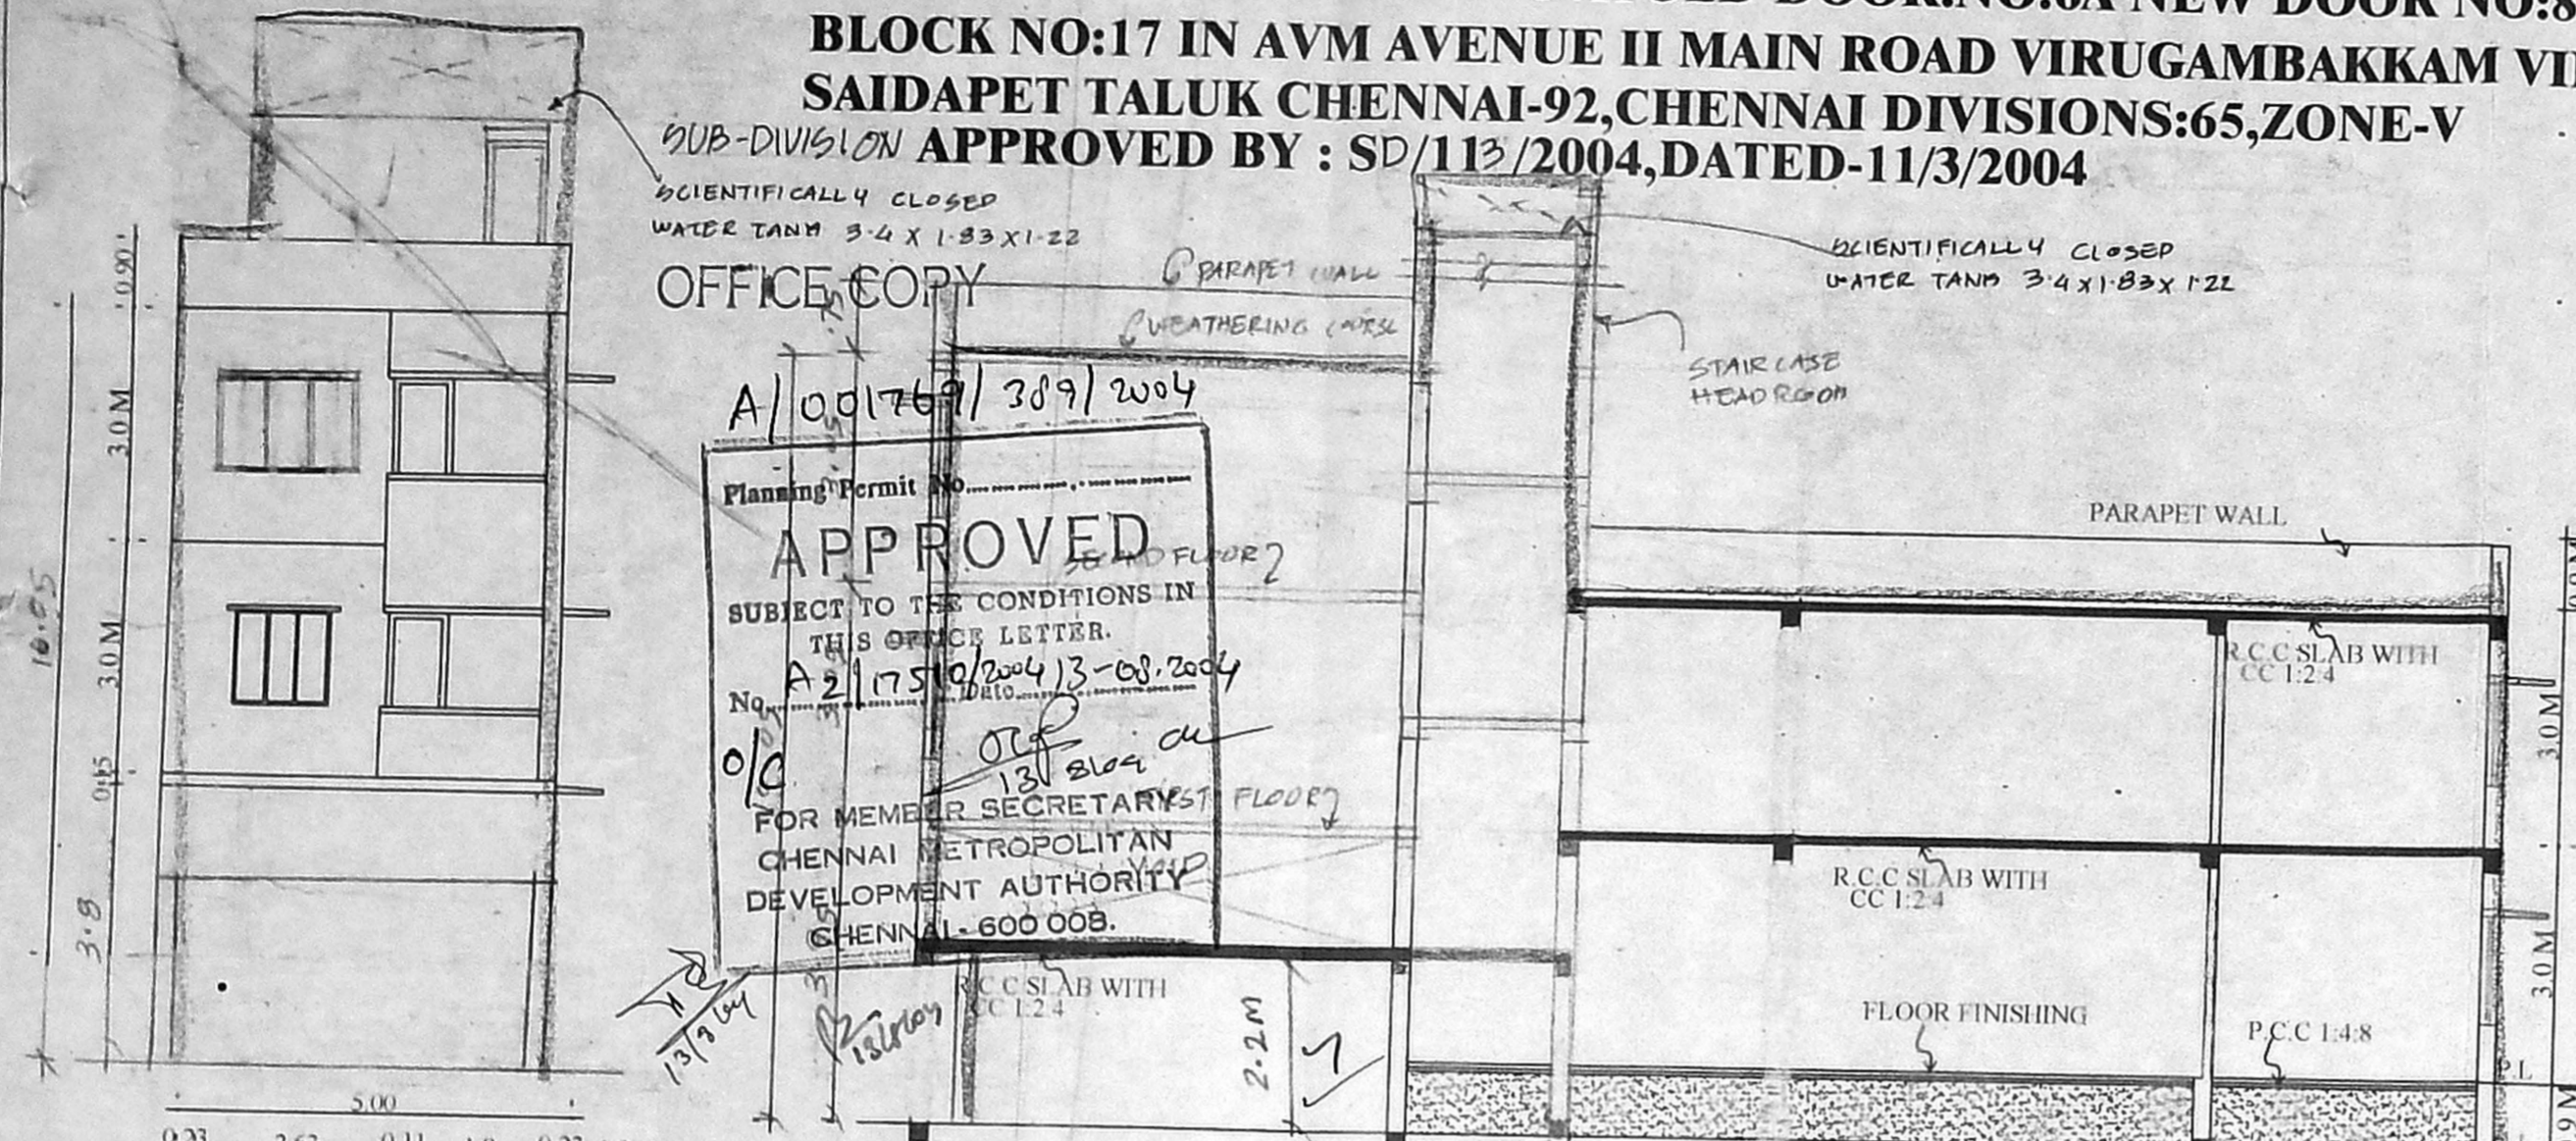 BLOCK NO:17 IN AVM AVENUE II MAIN ROAD VIRUGAMBAKKAM
SAIDAPET TALUK CHENNAI-92,CHENNAI DIVISIONS:65,ZONE-V
SUB-DIVISION APPROVED BY : SD/113/2004,DATED-11/3/2004
SCIENTIFICALLY CLOSED
WATER TANK 3.4 X 1.83 X 1.22
SCIENTIFICALLY CLOSED
WATER TANK 3.4 X 1.83 X 1.22
OFFICE COPY
PARAPET WALL
WEATHERING COURSE
STAIRCASE
HEADROOM
0.90
3.0 M
3.0 M
0.45
3.8
5.00
A/001769/389/2004
Planning Permit No
APPROVED
SUBJECT TO THE CONDITIONS IN
THIS OFFICE LETTER.
No. A2/17510/2004 Date 13-08.2004
O/C
FOR MEMBER SECRETARY
CHENNAI METROPOLITAN
DEVELOPMENT AUTHORITY
CHENNAI-600 008.
FIRST FLOOR
VOID
PARAPET WALL
R.C.C SLAB WITH
CC 1:2:4
R.C.C SLAB WITH
CC 1:2:4
R.C.C SLAB WITH
CC 1:2:4
2.2M
FLOOR FINISHING
P.C.C 1:4:8
3.0 M
3.0 M